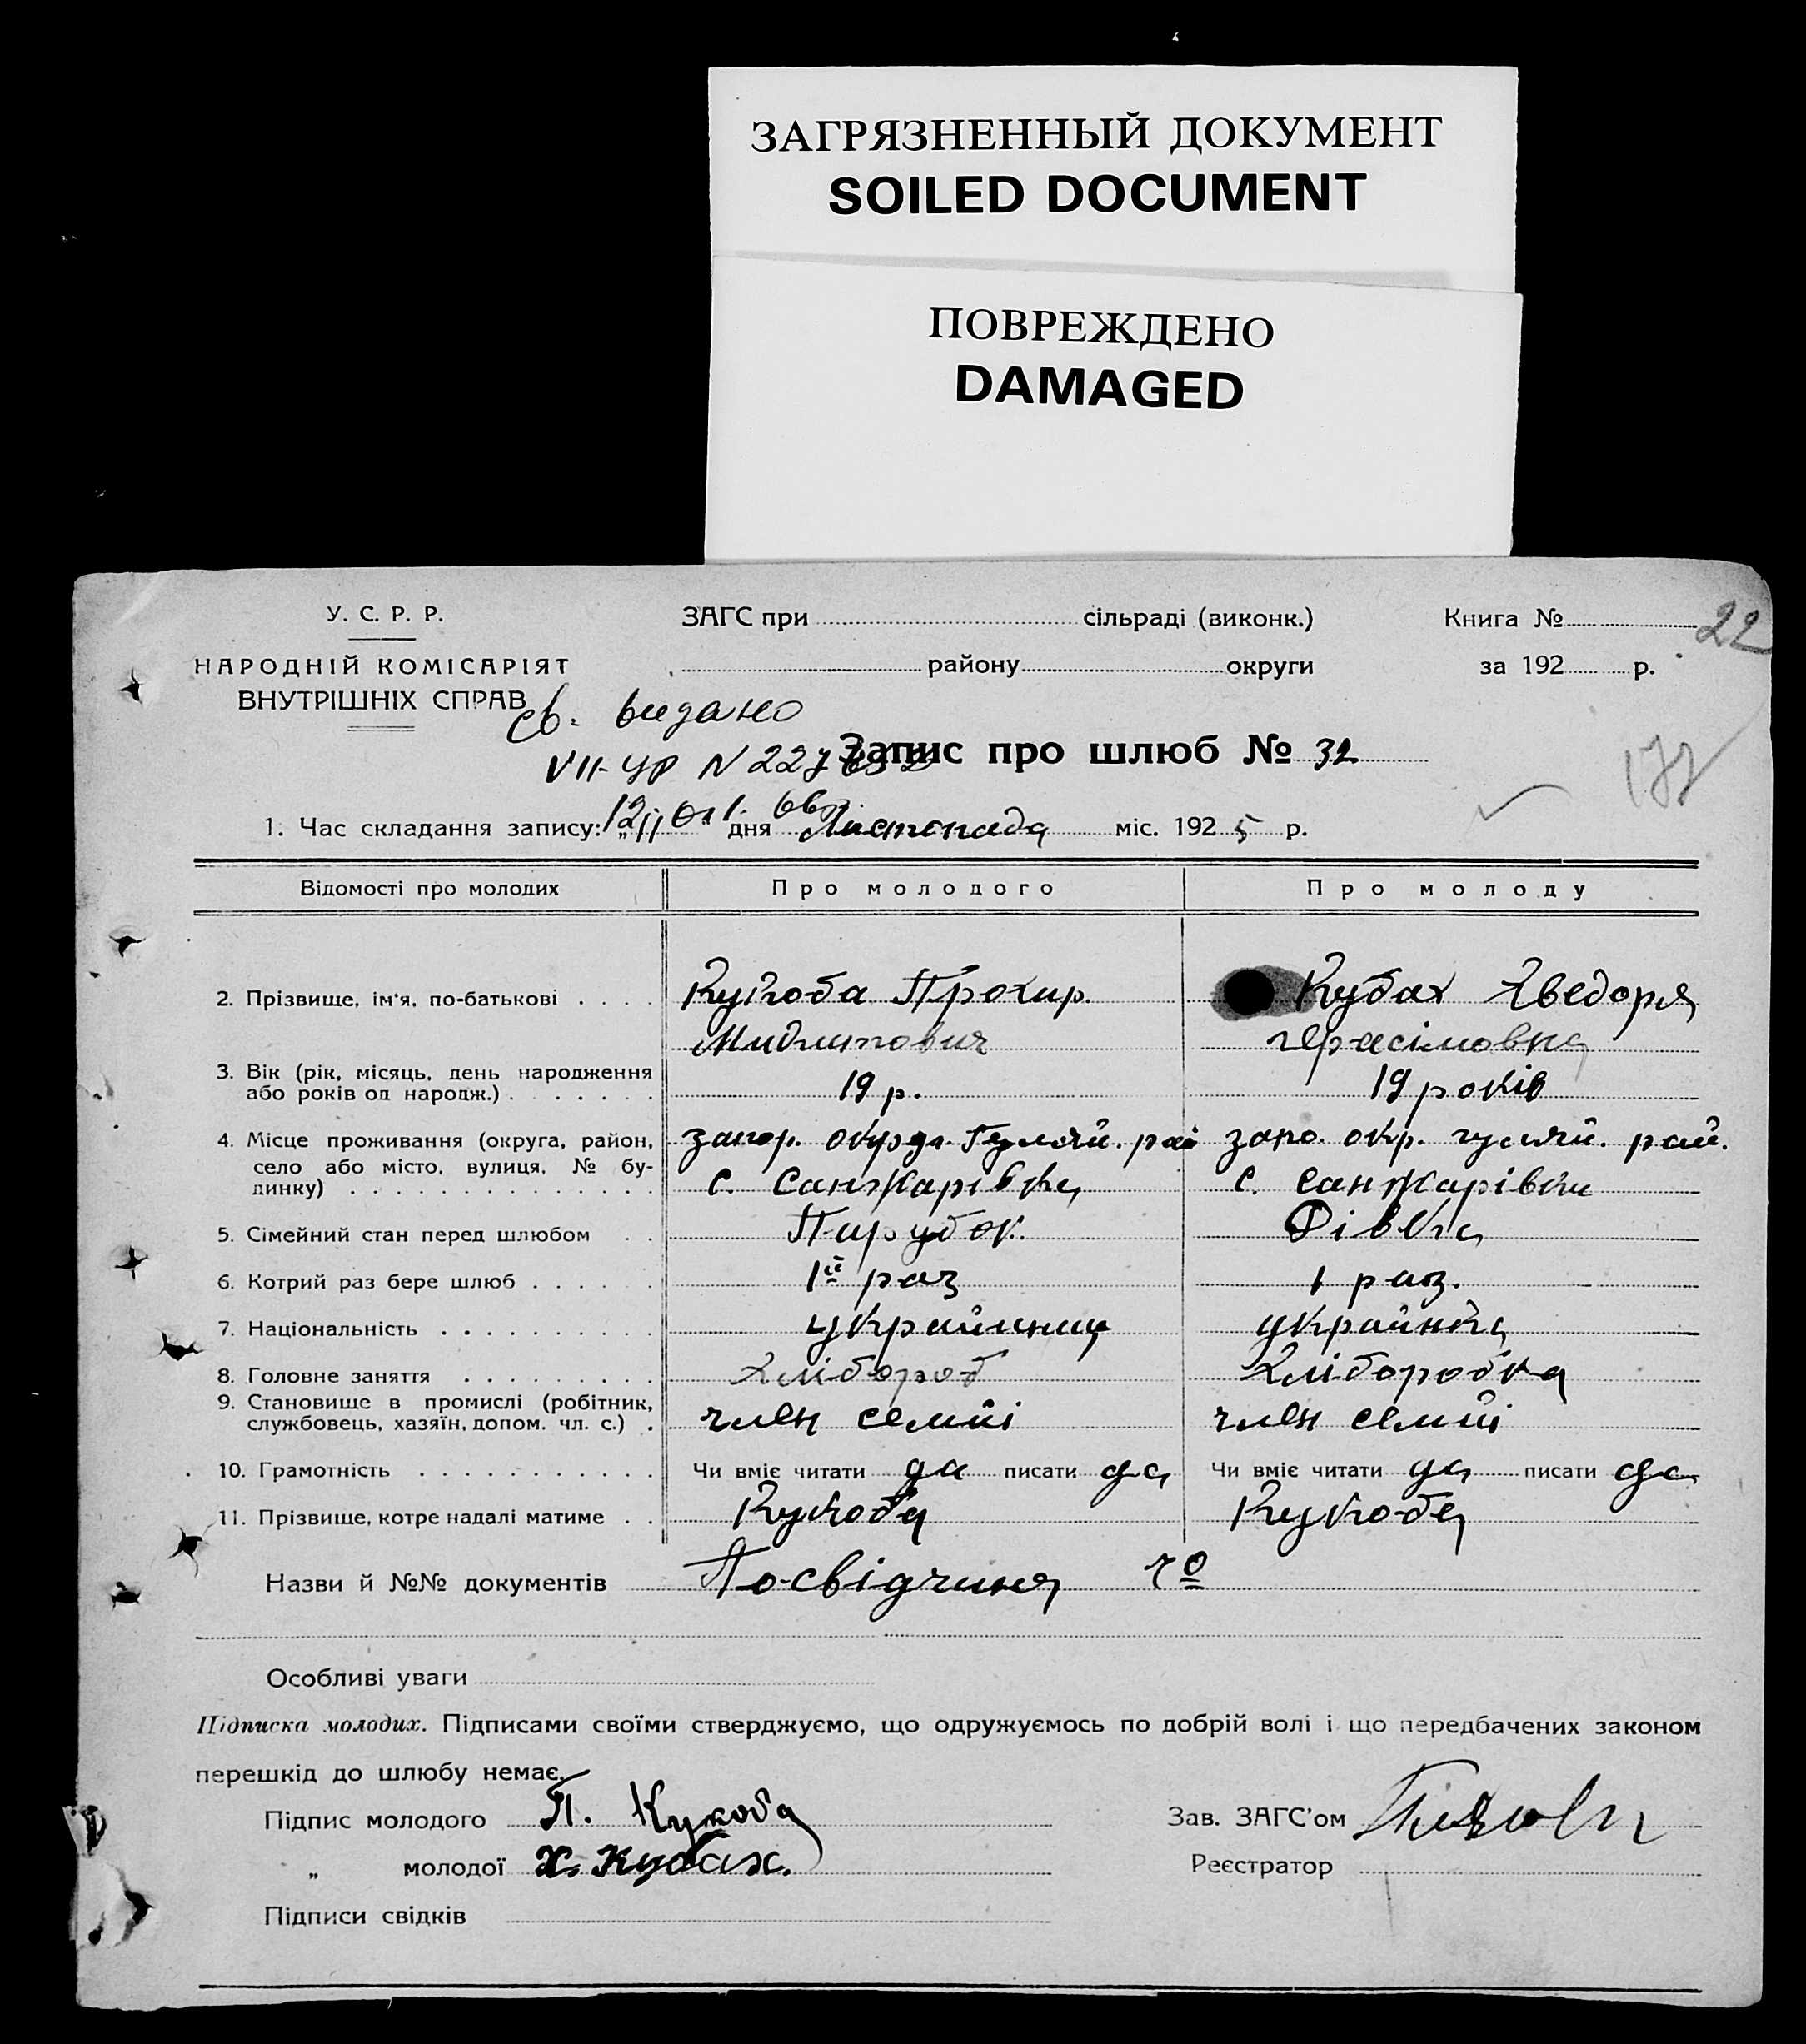 ЗАГРЯЗНЕННЫЙ ДОКУМЕНТ
SOILED DOCUMENT
ПОВРЕЖДЕНО
DAMAGED
У. С. Р. Р.
НАРОДНІЙ КОМІСАРІЯТ
ВНУТРІШНІХ СПРАВ
ЗАГС при сільраді (виконк.)
району округи
Книга №
за 192 р.
22
св. видано
VII-УР N 227
Запис про шлюб № 32
1. Час складання запису: дня Листопада міс. 1925 р.
Відомості про молодих Про молодого Про молоду
2. Прізвище, ім'я, по-батькові Кукоба Прохир. Кубах Хведоря
Герасімовна
3. Вік (рік, місяць, день народження
або років од народж.) 19 р. 19 років
4. Місце проживання (округа, район, запор. округа Гуляй. рай запо. окр. гуляй. рай.
село або місто, вулиця, № бу-
динку) с. Санжарівка с. Санжарівки
5. Сімейний стан перед шлюбом Парубок. Дівка
6. Котрий раз бере шлюб 1й раз 1 раз.
7. Національність українец українка
8. Головне заняття Хлібороб Хліборобка
9. Становище в промислі (робітник,
службовець, хазяїн, допом. чл. с.) член семйі член семйі
10. Грамотність Чи вміє читати да писати да Чи вміє читати да писати да
11. Прізвище, котре надалі матиме Кукоба Кукоба
Назви й №№ документів Посвідчиня
Особливі уваги
Підписка молодих. Підписами своїми стверджуємо, що одружуємось по добрій волі і що передбачених законом
перешкід до шлюбу немає.
Підпис молодого П. Кукоба Зав. ЗАГС'ом
„ молодої Х. Кубах. Реєстратор
Підписи свідків